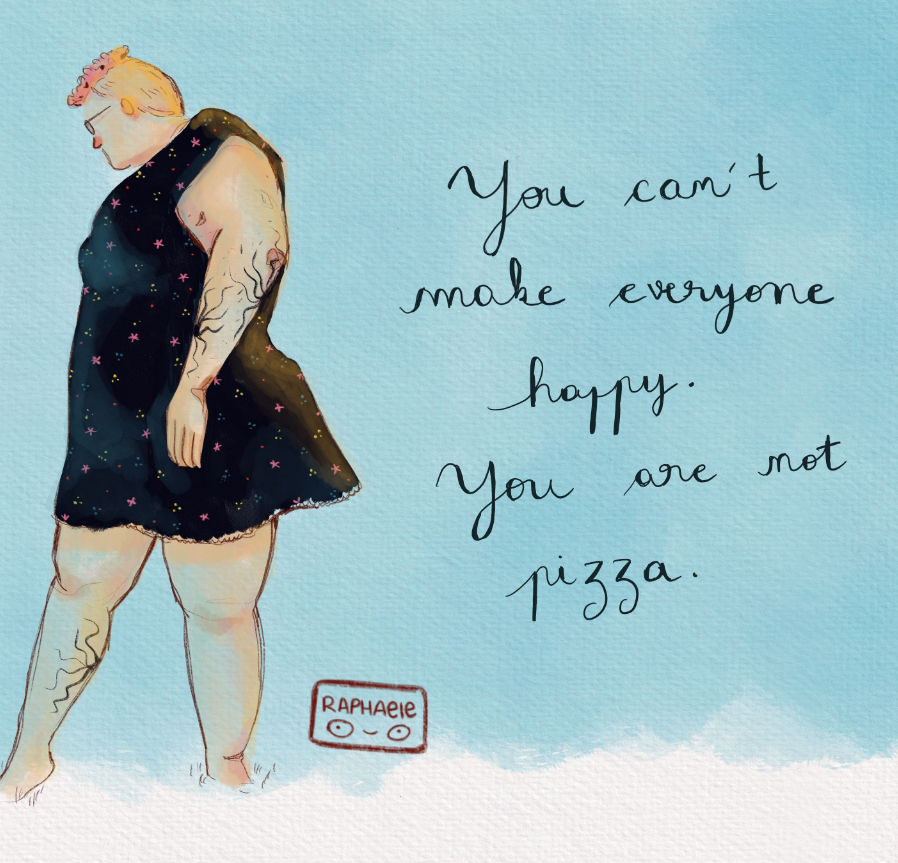 You can't
make everyone
happy.
You are not
pizza.
RAPHAElE